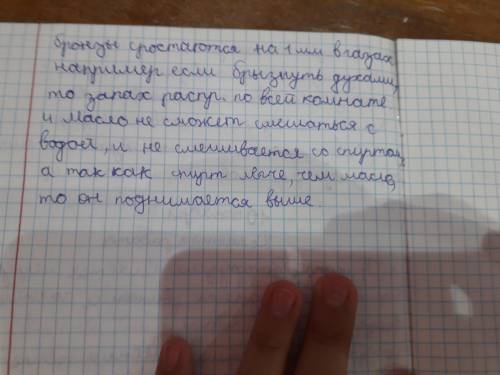 бронзы сростаются на 1 мм в газах
например если брызнуть духами,
то запах распр. по всей комнате
и масло не сможет смешаться с
водой, и не смешивается со спиртом,
а так как спирт легче, чем масло,
то он поднимается выше